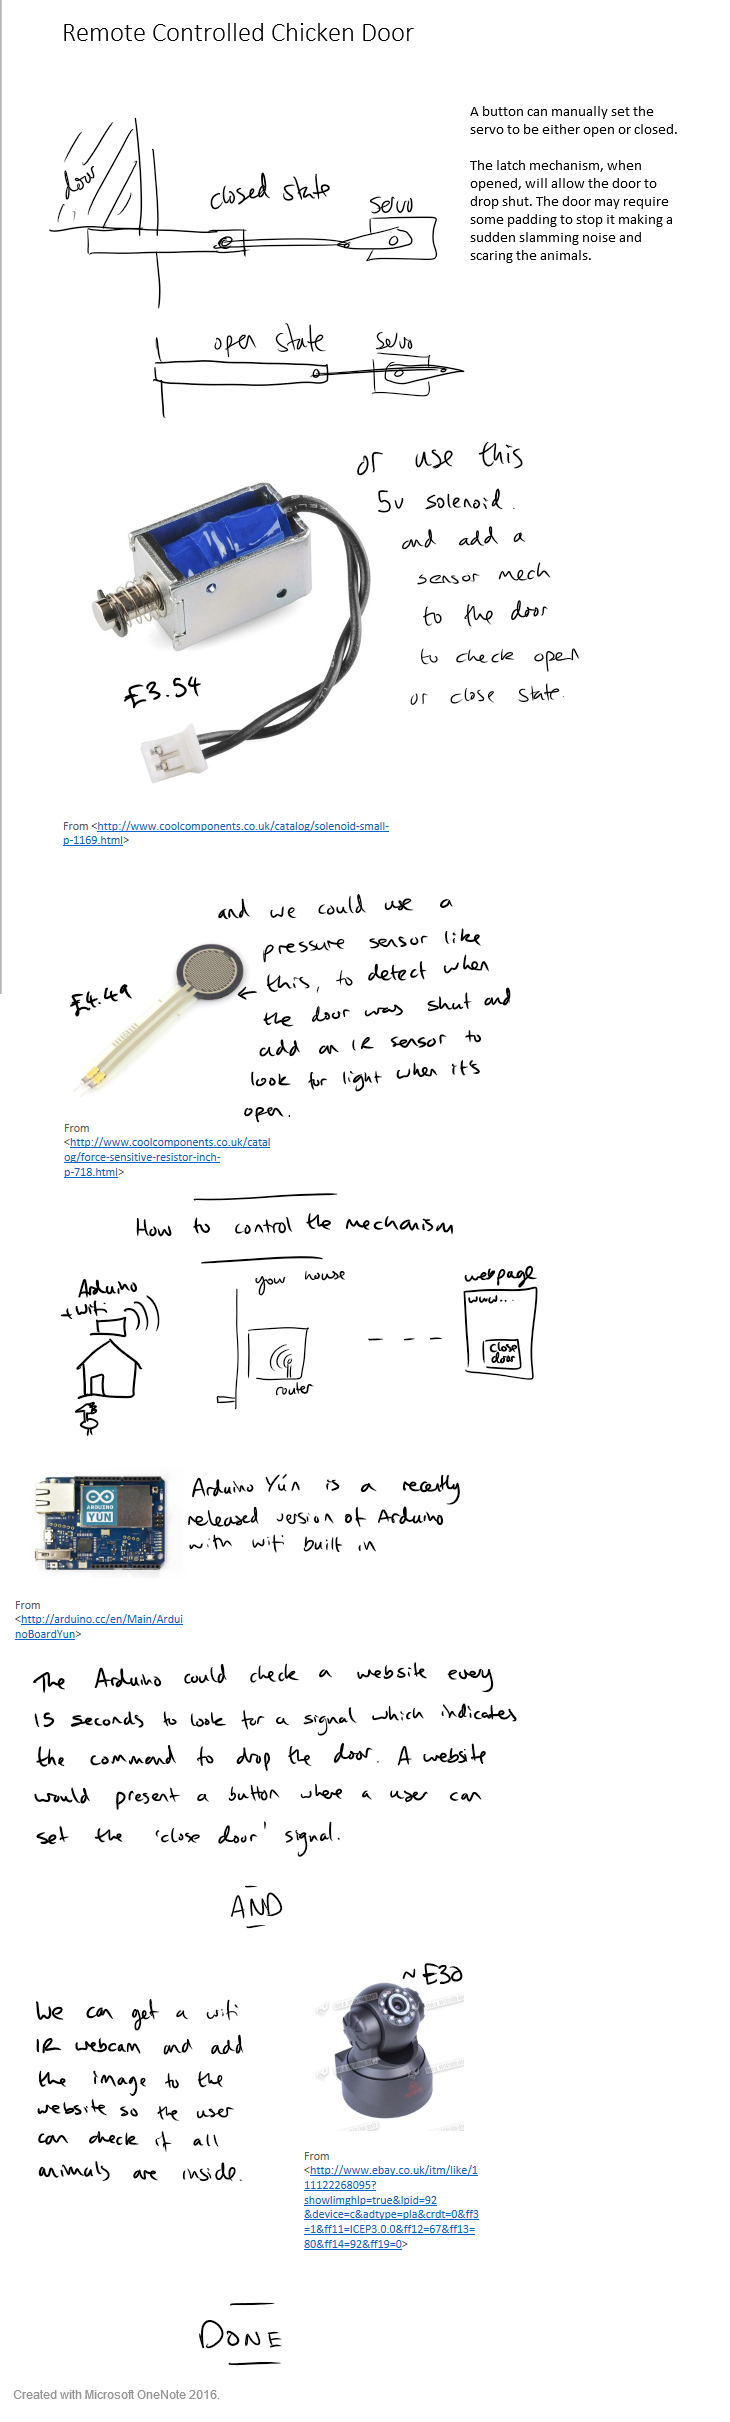 Remote Controlled Chicken Door
A button can manually set the
servo to be either open or closed.
The latch mechanism, when
opened, will allow the door to
drop shut. The door may require
some padding to stop it making a
sudden slamming noise and
scaring the animals.
door
closed state
Servo
open state
Servo
or use this
5v solenoid.
and add a
sensor mech
to the door
to check open
or close state.
£3.54
From <http://www.coolcomponents.co.uk/catalog/solenoid-small-
p-1169.html>
and we could use a
pressure sensor like
this, to detect when
the door was shut and
add an IR sensor to
look for light when it's
open.
£4.49
From
<http://www.coolcomponents.co.uk/catal
og/force-sensitive-resistor-inch-
p-718.html>
How to control the mechanism
Arduino
+ Wifi
your house
router
webpage
www...
close
door
ARDUINO
YUN
Arduino Yún is a recently
released version of Arduino
with wifi built in
From
<http://arduino.cc/en/Main/Ardui
noBoardYun>
The Arduino could check a website every
15 seconds to look for a signal which indicates
the command to drop the door. A website
would present a button where a user can
set the 'close door' signal.
AND
~ £30
We can get a wifi
IR webcam and add
the image to the
website so the user
can check if all
animals are inside.
From
<http://www.ebay.co.uk/itm/like/1
11122268095?
showlimghlp=true&lpid=92
&device=c&adtype=pla&crdt=0&ff3
=1&ff11=ICEP3.0.0&ff12=67&ff13=
80&ff14=92&ff19=0>
DONE
Created with Microsoft OneNote 2016.